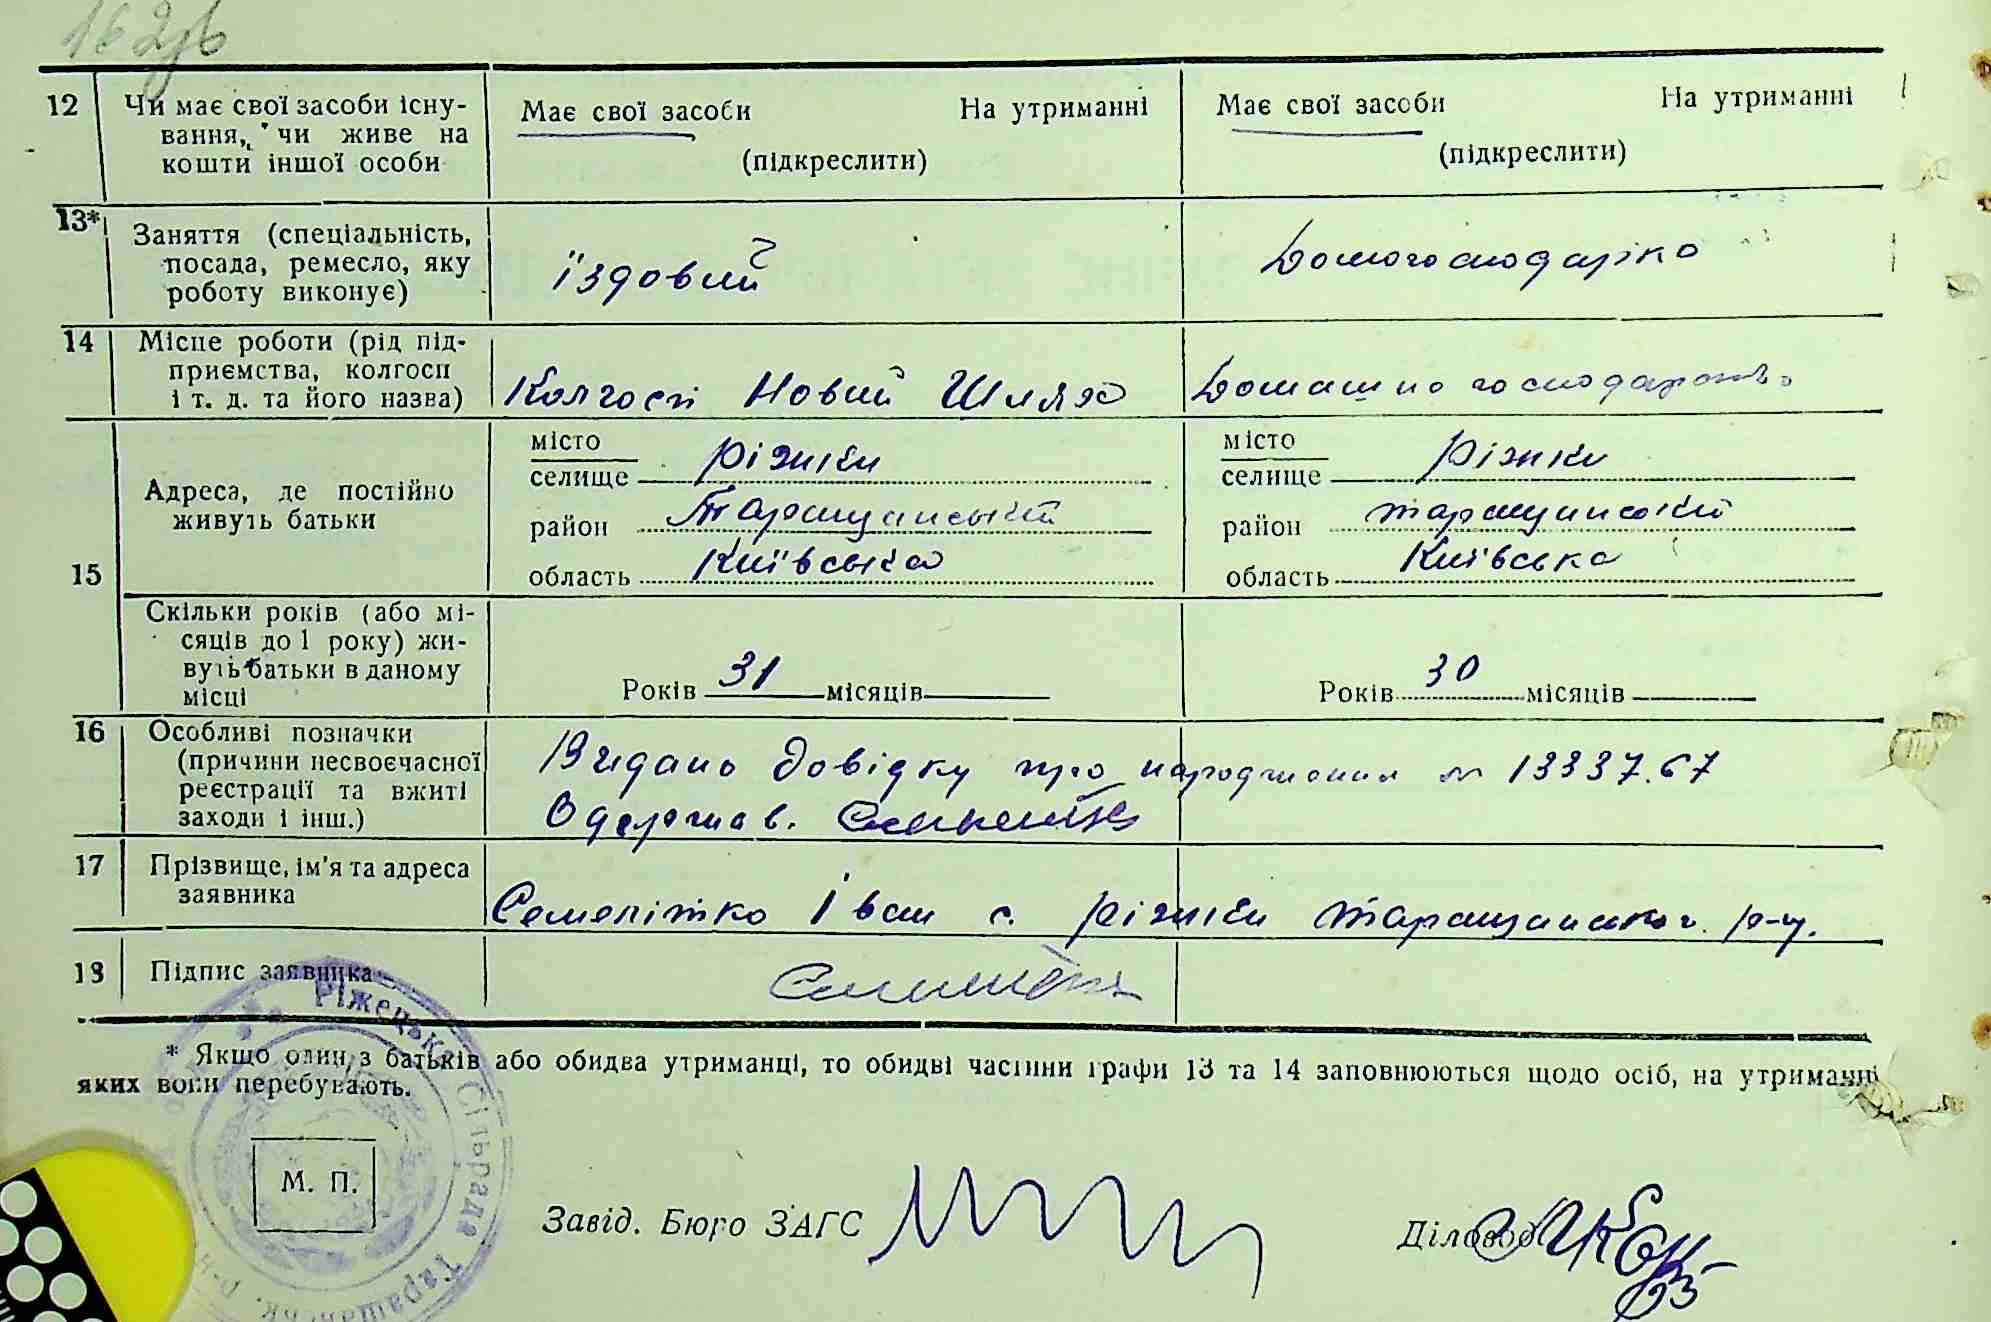 12 Чи має свої засоби існу-
вання, чи живе на
кошти іншої особи
Має свої засоби На утриманні
(підкреслити)
Має свої засоби На утриманні
(підкреслити)
13* Заняття (спеціальність,
посада, ремесло, яку
роботу виконує)
їздовий
Домогосподарка
14 Місце роботи (рід під-
приємства, колгосп
і т. д. та його назва)
Колгосп Новий Шлях
Домашнє господарство
15
Адреса, де постійно
живуть батьки
місто
селище Ріжки
район Таращанський
область Київська
місто
селище Ріжки
район Таращанський
область Київська
Скільки років (або мі-
сяців до 1 року) жи-
вуть батьки в даному
місці
Років 31 місяців
Років 30 місяців
16 Особливі позначки
(причини несвоєчасної
реєстрації та вжиті
заходи і інш.)
Видано довідку про народження № 13337.67
Одержав.
17 Прізвище, ім'я та адреса
заявника
Семелітко Іван с. Ріжки Таращанськог. р-ну.
18 Підпис заявника
* Якщо один з батьків або обидва утриманці, то обидві частини графи 13 та 14 заповнюються щодо осіб, на утриманні
яких вони перебувають.
Ріжецька Сільрада Таращанськ. р-н
М. П.
Завід. Бюро ЗАГС
Діловод